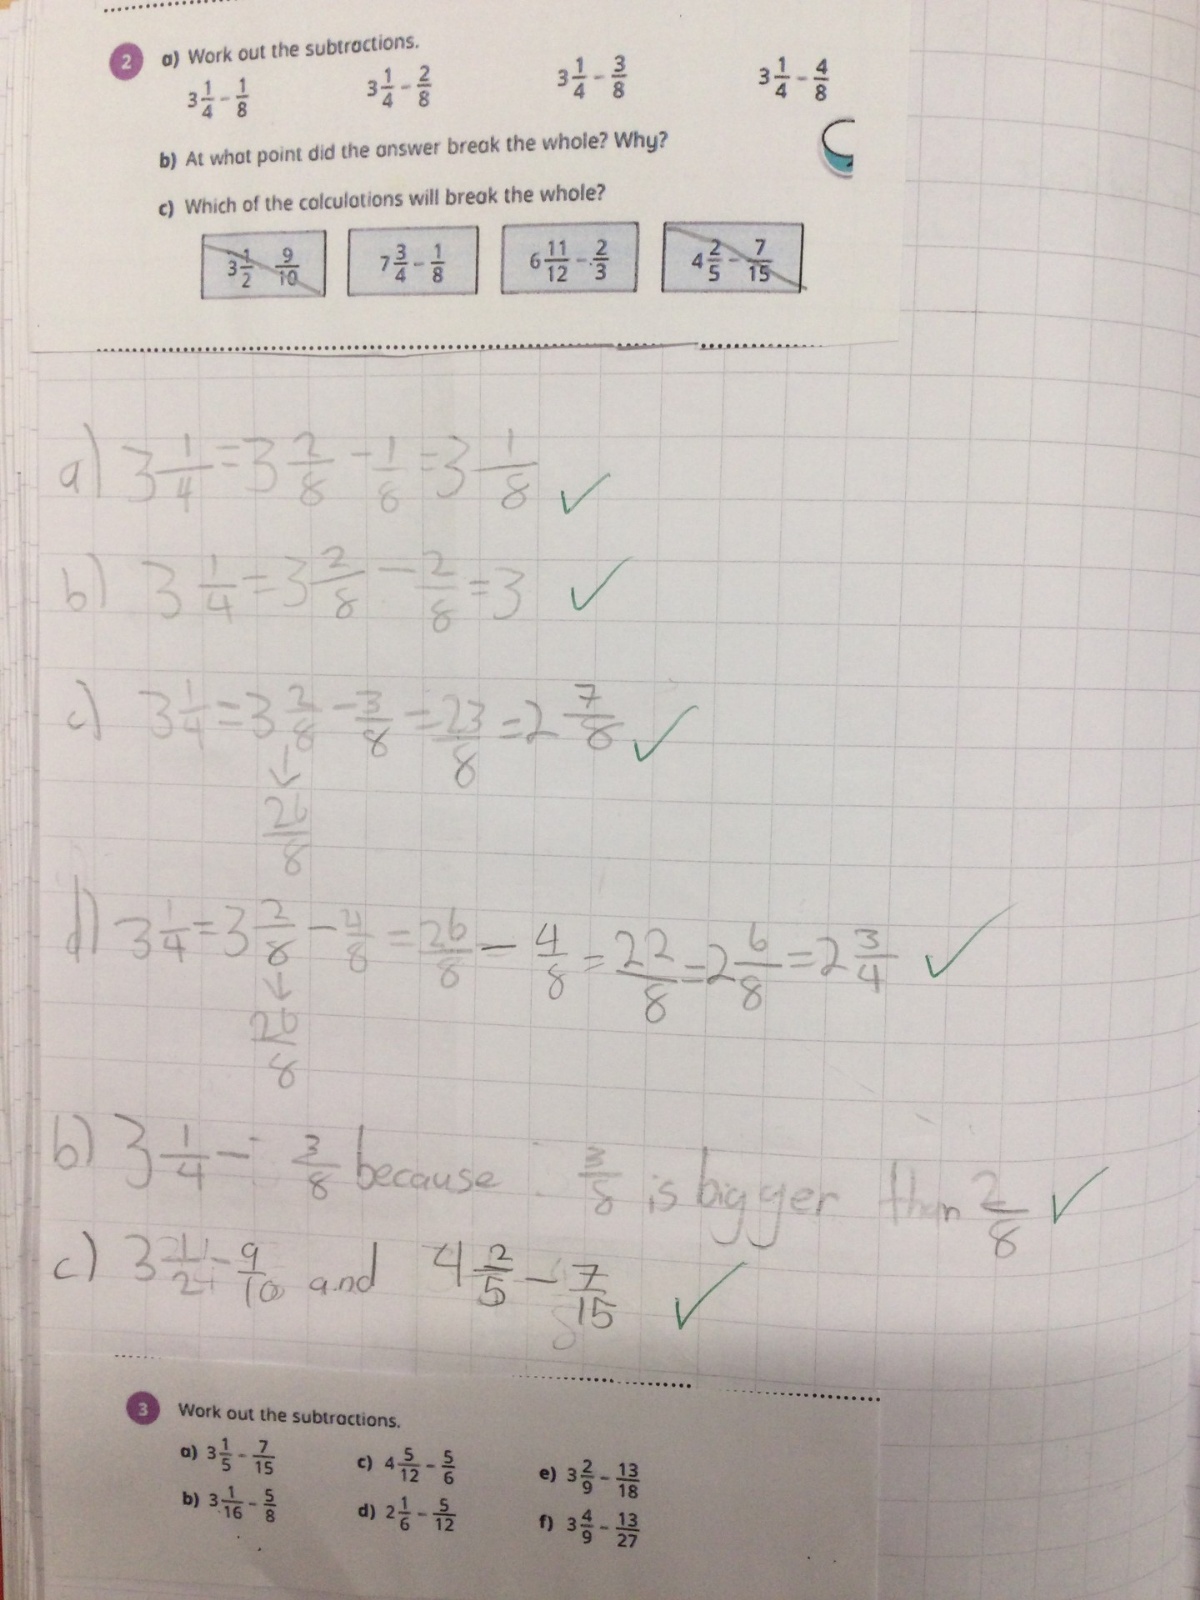 2 a) Work out the subtractions.
3 1/4 - 1/8   3 1/4 - 2/8   3 1/4 - 3/8   3 1/4 - 4/8
b) At what point did the answer break the whole? Why?
c) Which of the calculations will break the whole?
3 1/2 - 9/10   7 3/4 - 1/8   6 11/12 - 2/3   4 2/5 - 7/15
a) 3 1/4 = 3 2/8 - 1/8 = 3 1/8 ✓
b) 3 1/4 = 3 2/8 - 2/8 = 3 ✓
c) 3 1/4 = 3 2/8 - 3/8 = 23/8 = 2 7/8 ✓
↓
26/8
d) 3 1/4 = 3 2/8 - 4/8 = 26/8 - 4/8 = 22/8 = 2 6/8 = 2 3/4 ✓
↓
26/8
b) 3 1/4 - 3/8 because 3/8 is bigger than 2/8 ✓
c) 3 1/2 - 9/10 and 4 2/5 - 7/15 ✓
3 Work out the subtractions.
a) 3 1/5 - 7/15   c) 4 5/12 - 5/6   e) 3 2/9 - 13/18
b) 3 1/16 - 5/8   d) 2 1/6 - 5/12   f) 3 4/9 - 13/27